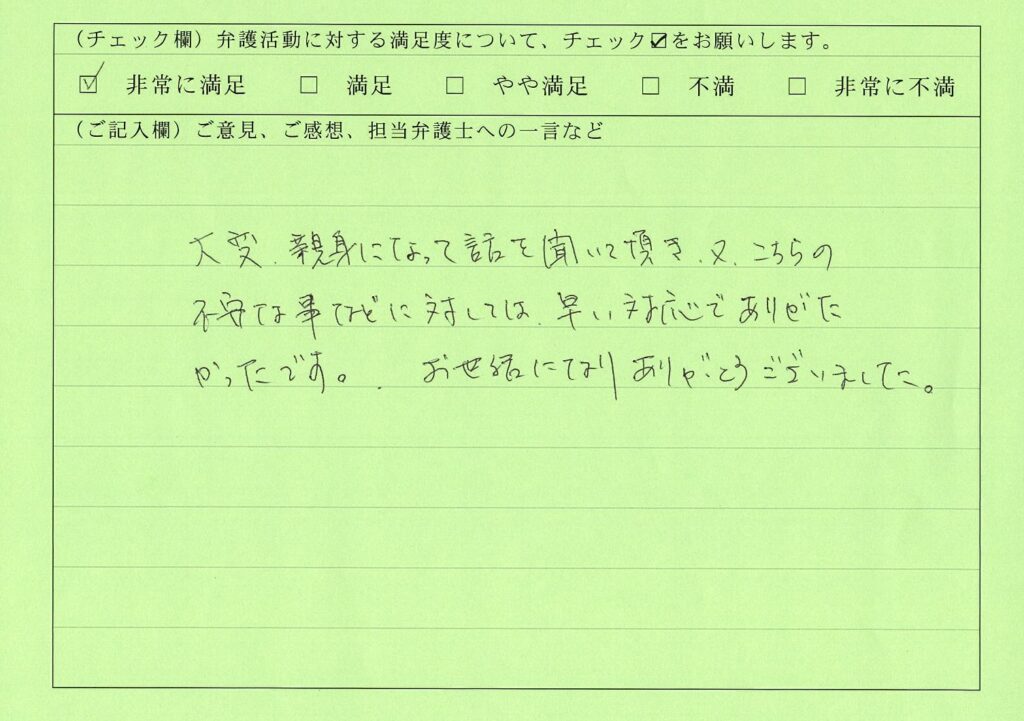 （チェック欄）弁護活動に対する満足度について、チェック☑をお願いします。
☑ 非常に満足 □ 満足 □ やや満足 □ 不満 □ 非常に不満
（ご記入欄）ご意見、ご感想、担当弁護士への一言など
大変、親身になって話を聞いて頂き、又、こちらの
不安な事などに対しては、早い対応でありがた
かったです。. お世話になりありがとうございました。